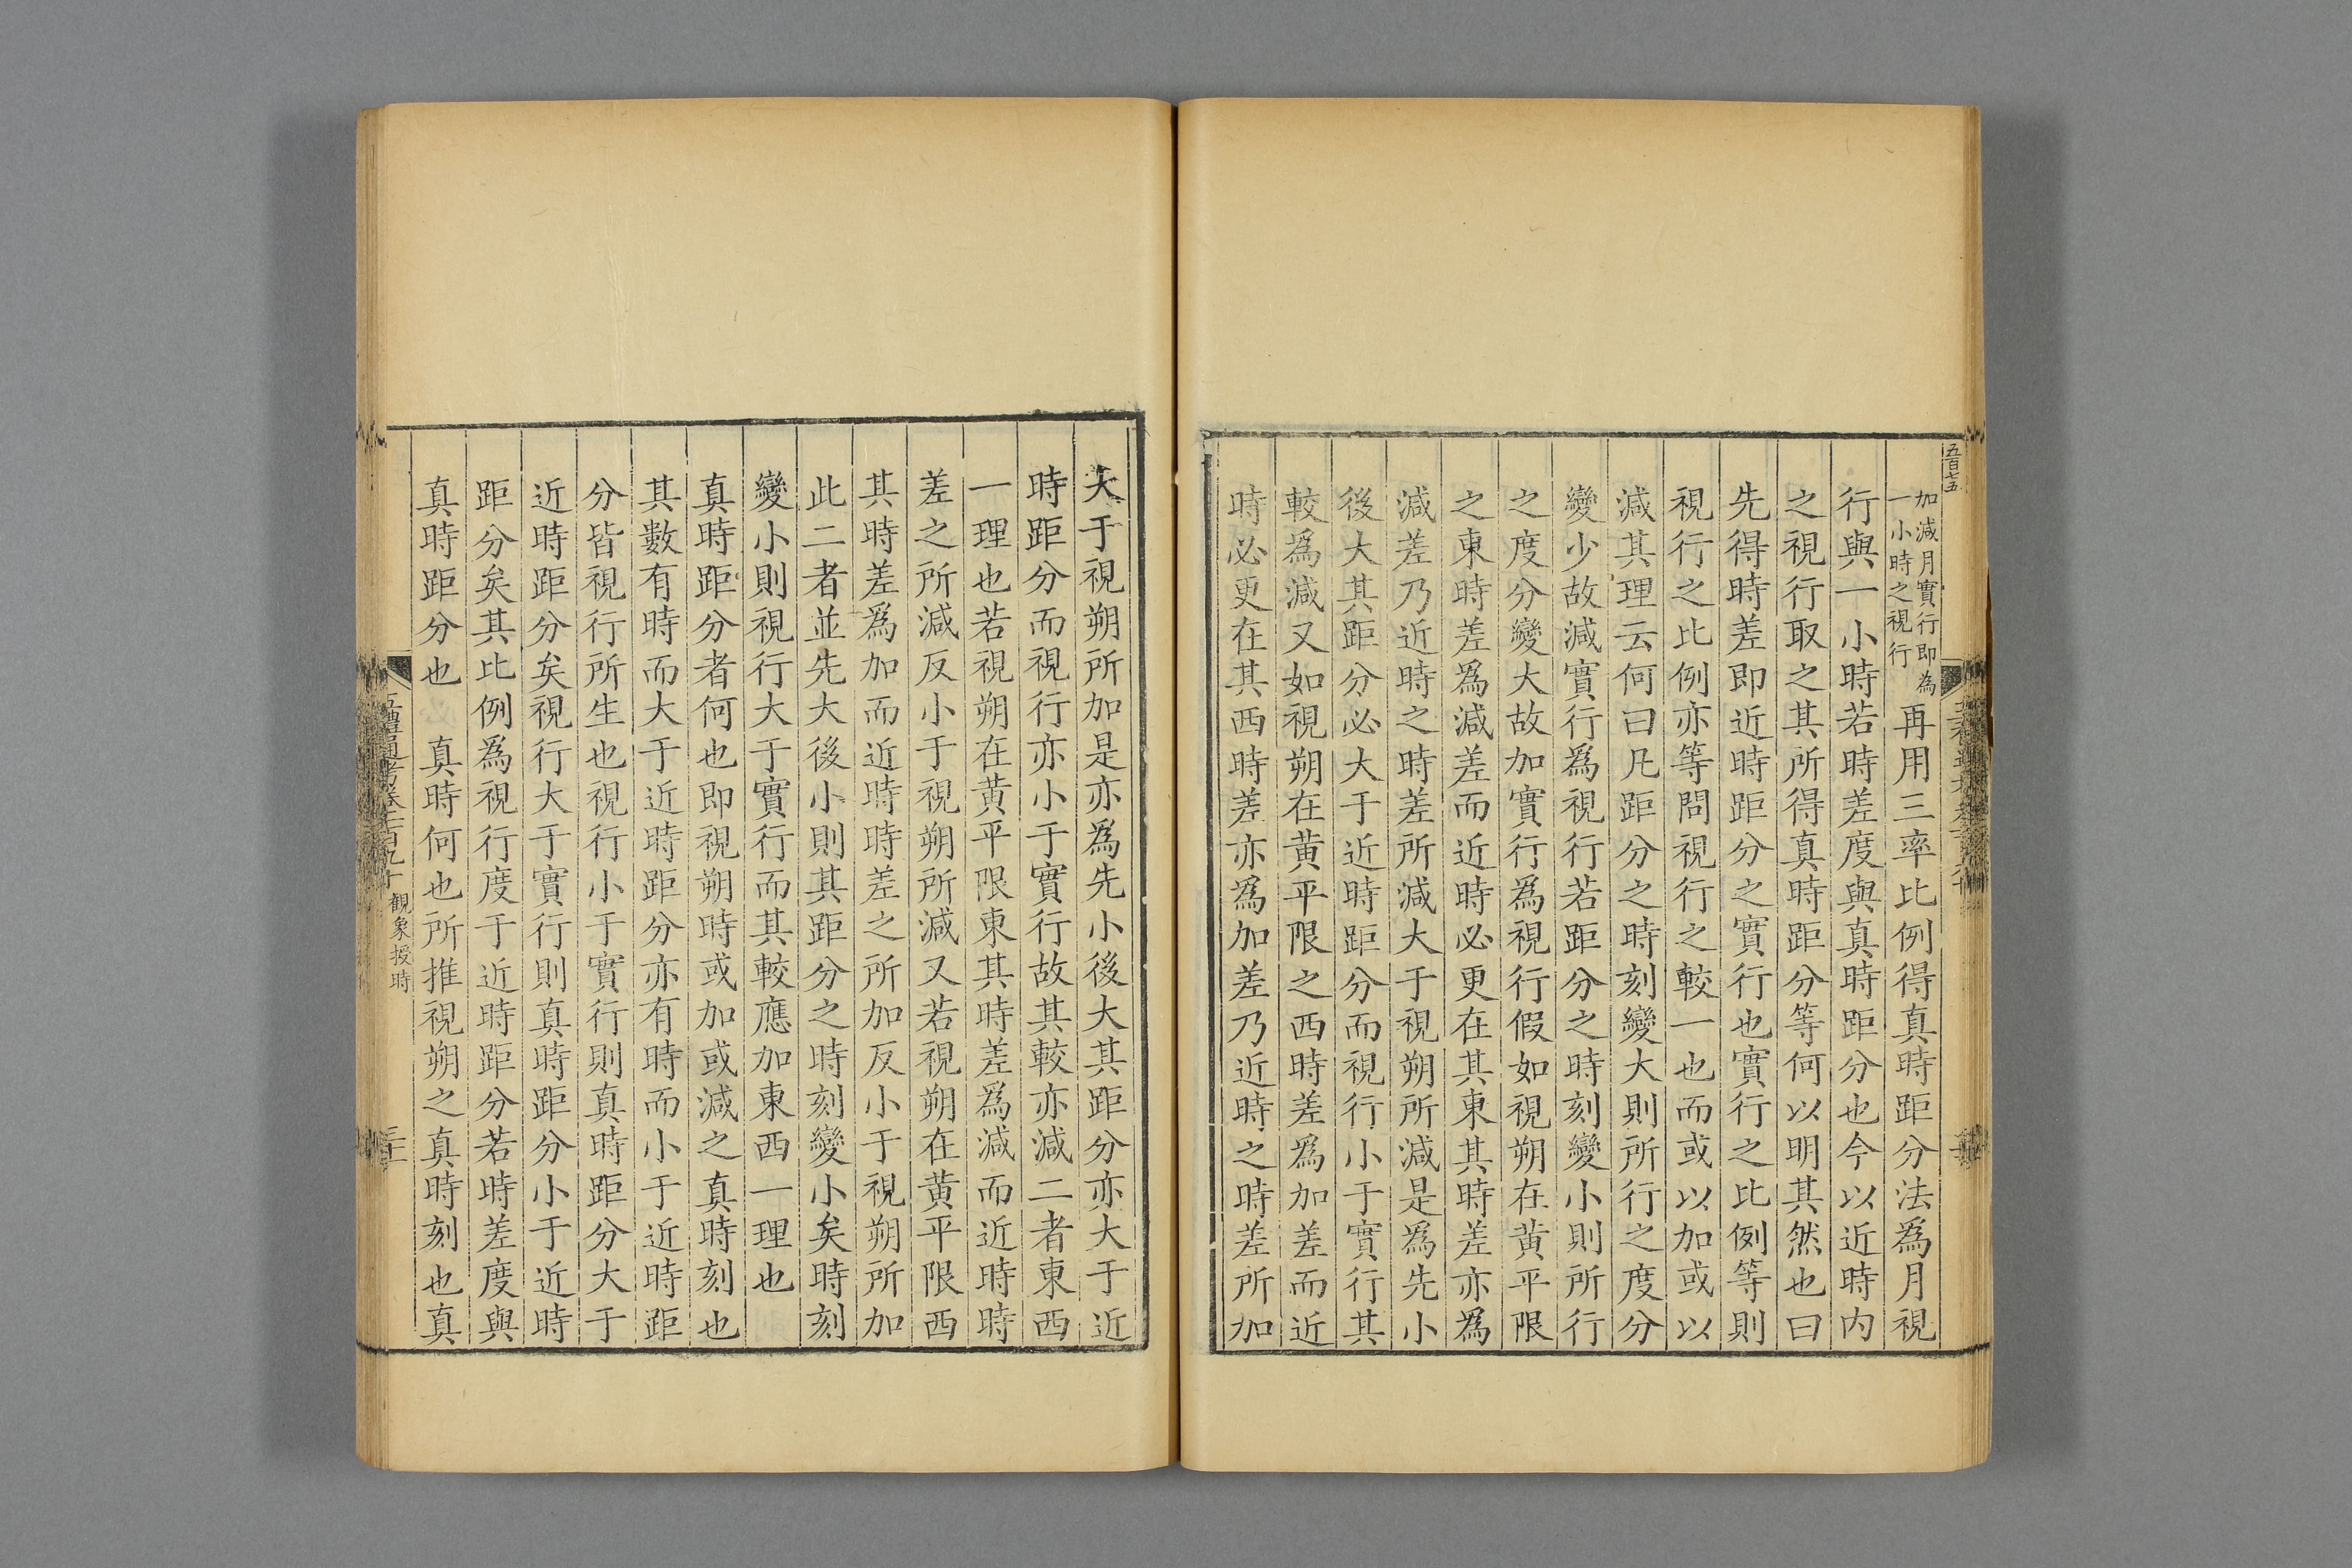 五百七五
加減月實行即為
一小時之視行
再用三率比例得真時距分法為月視
行與一小時若時差度與真時距分也今以近時内
之視行取之其所得真時距分等何以明其然也曰
先得時差即近時距分之實行也實行之比例等則
視行之比例亦等問視行之較一也而或以加或以
減其理云何曰凡距分之時刻變大則所行之度分
變少故減實行爲視行若距分之時刻變小則所行
之度分變大故加實行為視行假如視朔在黄平限
之東時差爲減差而近時必更在其東其時差亦爲
減差乃近時之時差所減大于視朔所減是爲先小
後大其距分必大于近時距分而視行小于實行其
較爲減又如視朔在黄平限之西時差爲加差而近
時必更在其西時差亦爲加差乃近時之時差所加
大于視朔所加是亦爲先小後大其距分亦大于近
時距分而視行亦小于實行故其較亦減二者東西
一理也若視朔在黄平限東其時差爲減而近時時
差之所減反小于視朔所減又若視朔在黄平限西
其時差爲加而近時時差之所加反小于視朔所加
此二者並先大後小則其距分之時刻變小矣時刻
變小則視行大于實行而其較應加東西一理也
真時距分者何也即視朔時或加或減之真時刻也
其數有時而大于近時距分亦有時而小于近時距
分皆視行所生也視行小于實行則真時距分大于
近時距分矣視行大于實行則真時距分小于近時
距分矣其比例爲視行度于近時距分若時差度與
真時距分也 真時何也所推視朔之真時刻也真
五禮通考卷一百九十 觀象授時